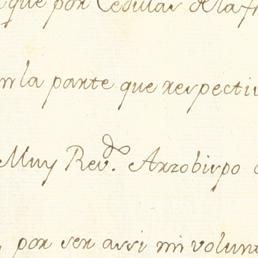 que por Cedulas de la
en la parte que respecti
Muy Rev.do Arzobispo
, por ser assi mi volun